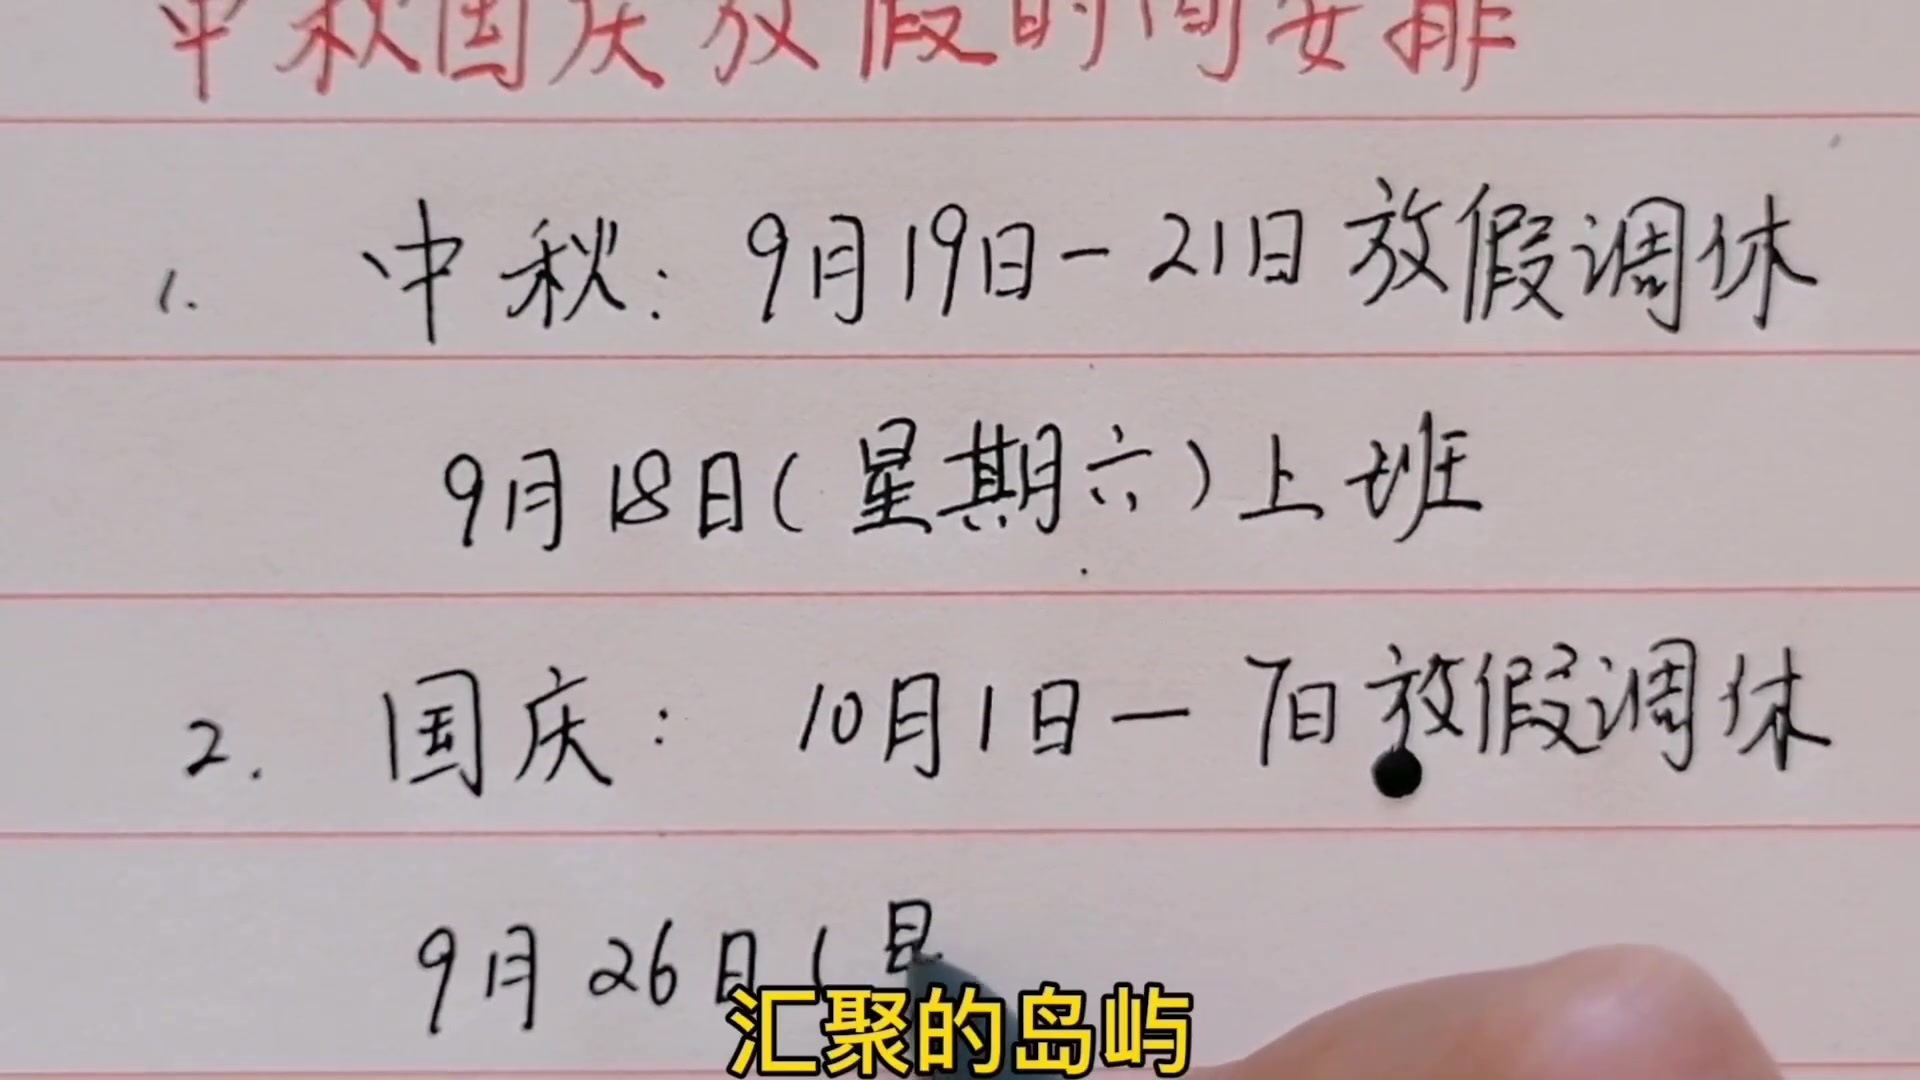 中秋国庆放假时间安排
1. 中秋：9月19日-21日放假调休
9月18日(星期六)上班
2. 国庆：10月1日-7日放假调休
9月26日(
汇聚的岛屿